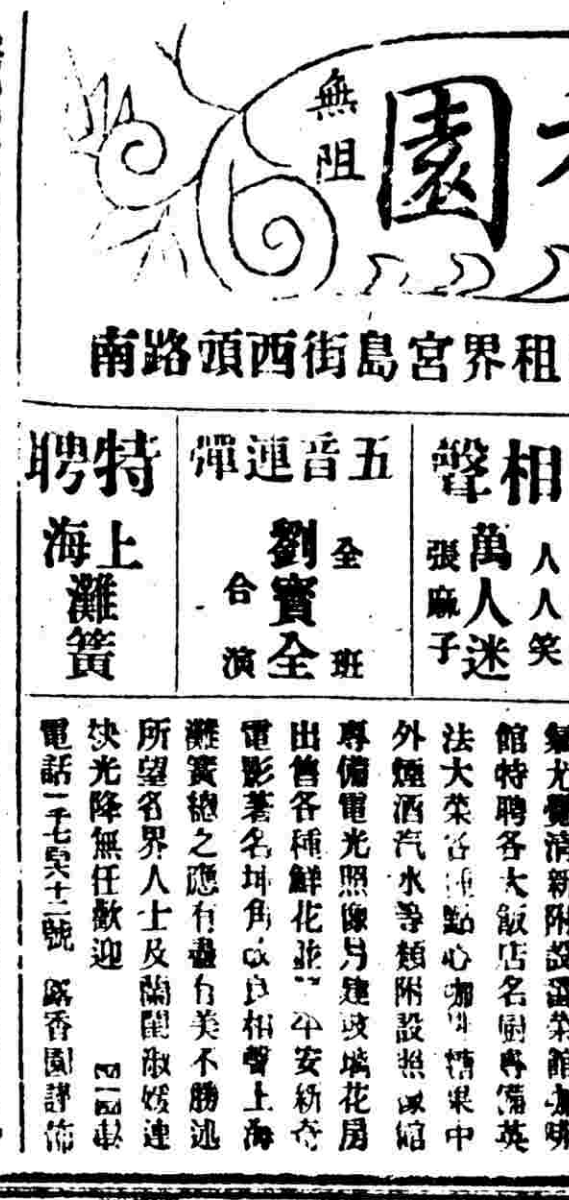 園
無阻
租界宮島街西頭路南
相聲
人人笑
萬人迷
張麻子
五音連彈
全班
劉寶全
合演
特聘
上海
灘簧
尤覺清新附設
館特聘各大飯店名厨專備英
法大菜各種點心咖啡糖菓中
外煙酒汽水等類附設照像館
專備電光照像另建玻璃花房
出售各種鮮花並 平安新奇
電影著名坤角改良相聲上海
灘簧總之應有盡有美不勝述
所望名界人士及蘭閨淑媛連
快光降無任歡迎
電話一千七 十二號 露香園謹佈